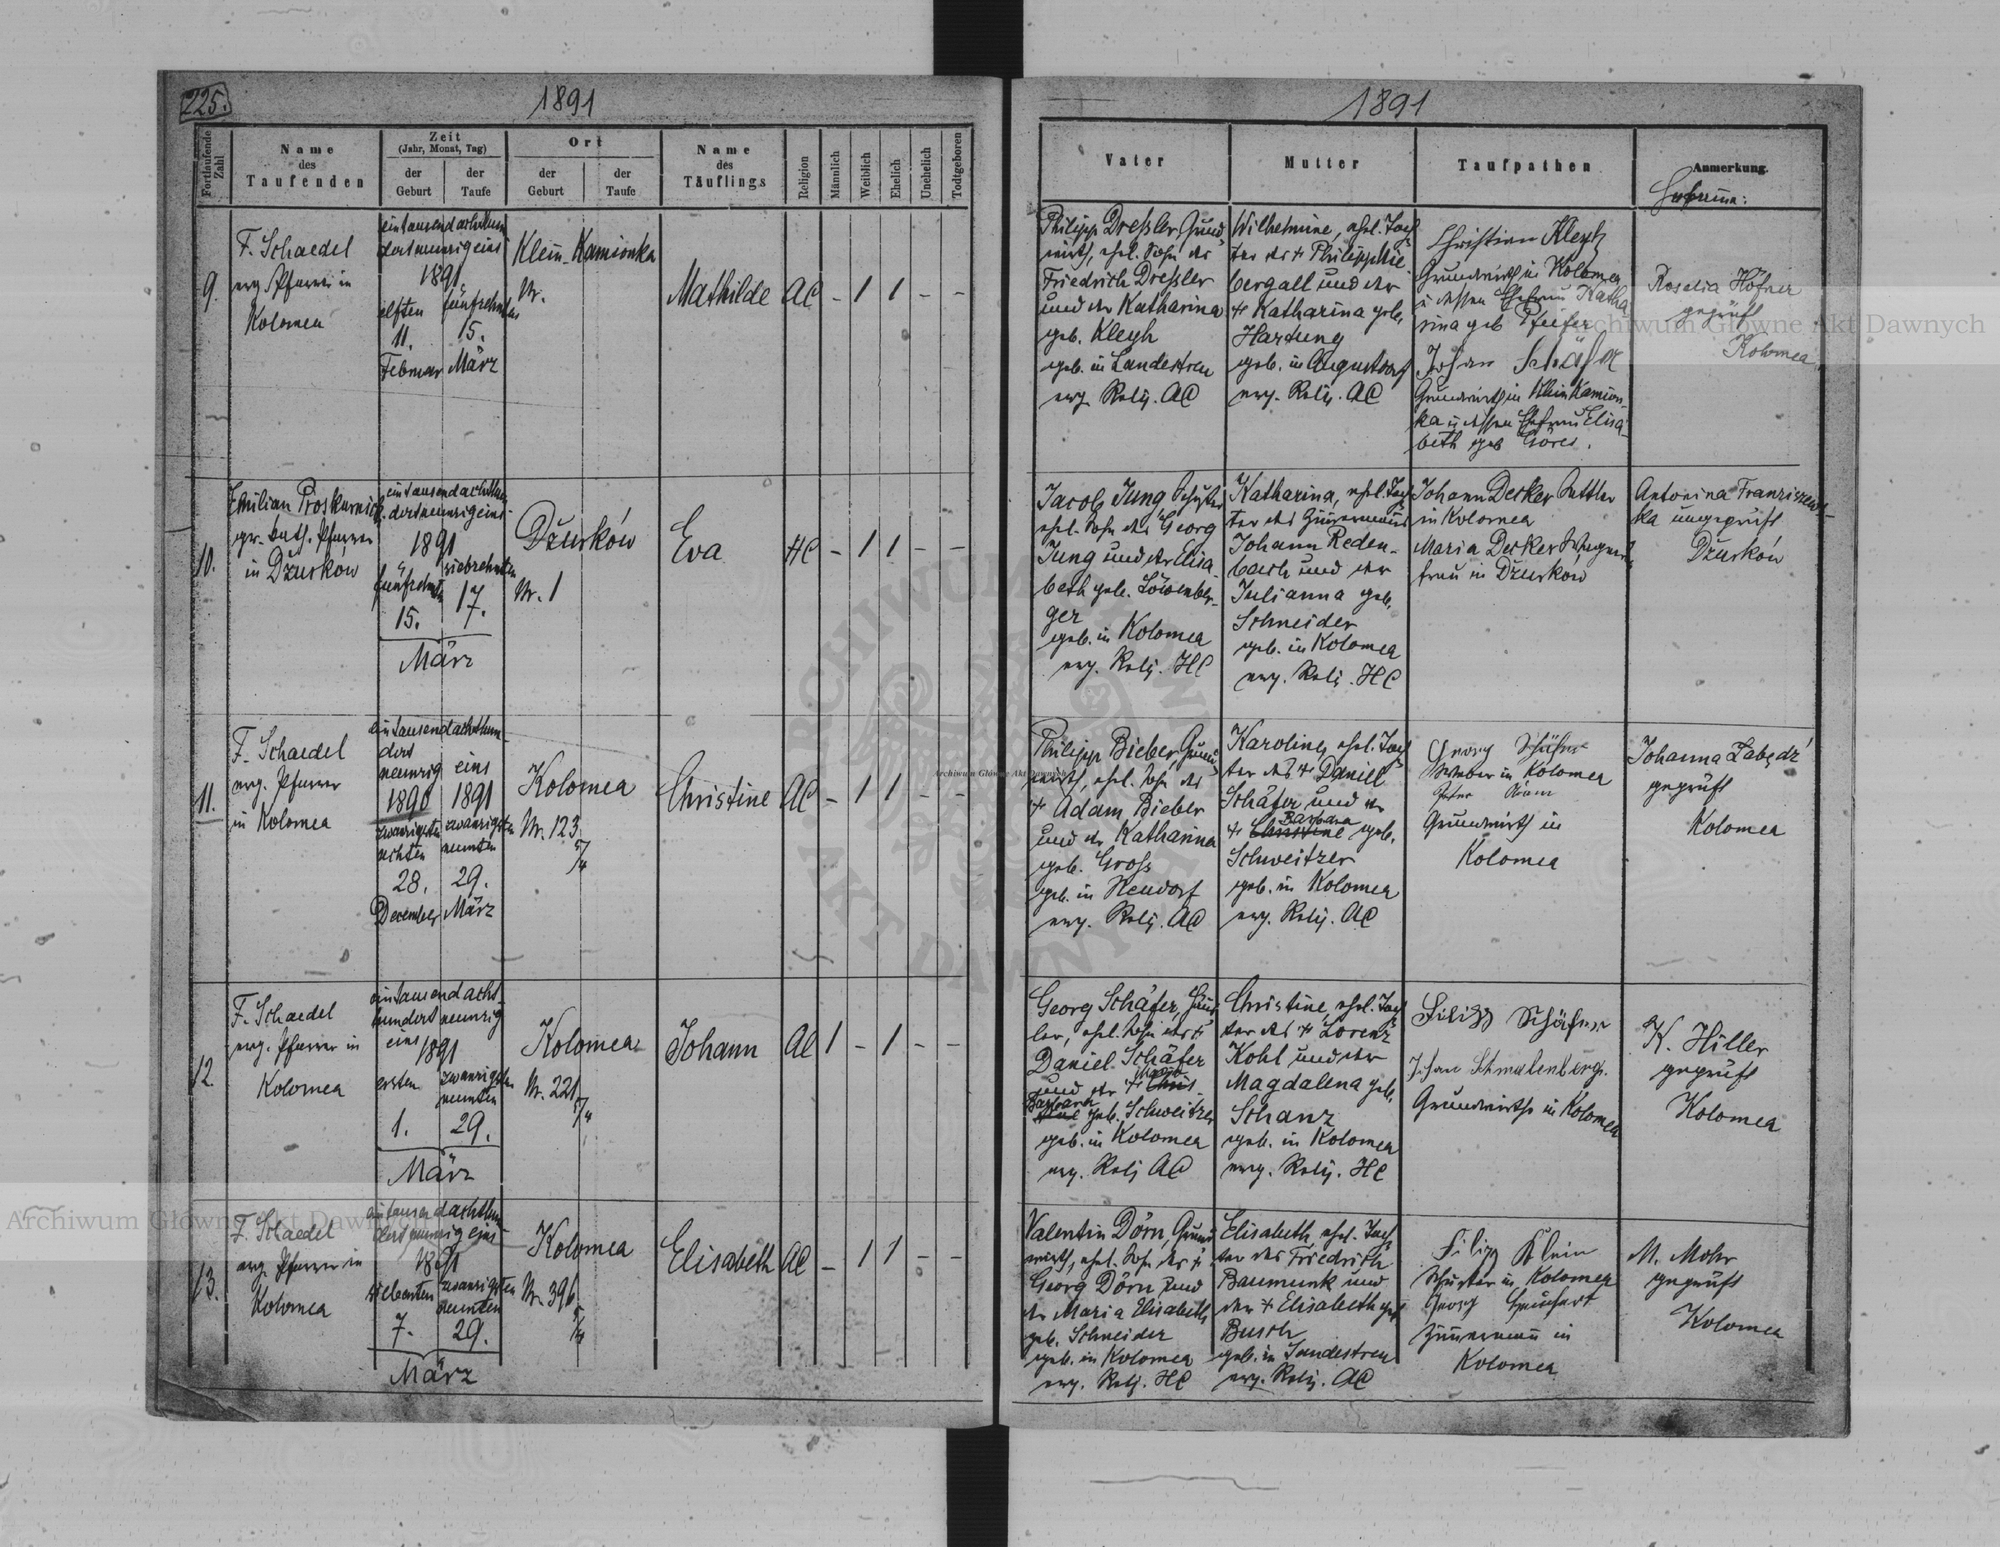 225.
1891
Fortlaufende Zahl
Name
des
Taufenden
Zeit
(Jahr, Monat, Tag)
der
Geburt
der
Taufe
Ort
der
Geburt
der
Taufe
Name
des
Täuflings
Religion
Männlich
Weiblich
Ehelich
Unehelich
Todtgeboren
9.
F. Schaedel
evg. Pfarrer in
Kolomea
eintausendachthun
dertneunzigeins
1891
elften fünfzehnten
11. 15.
Februar März
Klein-Kamionka
Nr.
Mathilde
AC
- 1 1 - -
10.
Emilian Proskurnicki
gr. kath. Pfarrer
in Dżurków
eintausendachthun
dertneunzigeins
1891
fünfzehnten siebzehnten
15. 17.
März
Dżurków
Nr. 1
Eva
HC
- 1 1 - -
11.
F. Schaedel
evg. Pfarrer
in Kolomea
eintausendachthun
dert
neunzig eins
1890 1891
zwanzigsten zwanzigsten
achten neunten
28. 29.
December März
Kolomea
Nr. 123
5/4
Christine
AC
- 1 1 - -
12.
F. Schaedel
evg. Pfarrer in
Kolomea
eintausendacht
hundert neunzig
eins
1891
ersten zwanzigsten
neunten
1. 29.
März
Kolomea
Nr. 221
5/4
Johann
AC
1 - 1 - -
13.
F. Schaedel
evg. Pfarrer in
Kolomea
eintausendachthun
dertneunzigeins
1891
siebenten zwanzigsten
neunten
7. 29.
März
Kolomea
Nr. 396
5/4
Elisabeth
AC
- 1 1 - -
1891
Vater
Mutter
Taufpathen
Anmerkung.
Hebamme:
Philipp Dreßler Grund
wirth, ehel. Sohn des
Friedrich Dreßler
und der Katharina
geb. Kleyh
geb. in Landestreu
evg. Relig. AC
Wilhelmine, ehel. Toch
ter des + Philipp
bergall und der
+ Katharina geb.
Hartung
geb. in Augustdorf
evg. Relig. AC
Christian Kleyh
Grundwirth in Kolomea
u dessen Ehefrau Katha
rina geb Pfeifer
Johan Schäfer
Grundwirth in Klein Kamion
ka u dessen Ehefrau Elisa
beth geb Göres.
Rosalia Höfner
geprüft
Kolomea
Jacob Jung Schuster
ehel. Sohn des Georg
Jung und der Elisa
beth geb. Löwenber-
ger
geb. in Kolomea
evg. Relig. HC
Katharina, ehel. Toch
ter des Zimmermanns
Johann Reden-
bach und der
Julianna geb.
Schneider
geb. in Kolomea
evg. Relig. HC
Johann Decker Sattler
in Kolomea
Maria Decker Wagners
frau in Dżurków
Antonina Franziszews-
ka ungeprüft
Dżurków
Philipp Bieber Grund
wirth, ehel. Sohn des
+ Adam Bieber
und der Katharina
geb. Groß
geb. in Neudorf
evg. Relig. AC
Karoline, ehel. Toch
ter des + Daniel
Schäfer und der
Barbara
+ Christine geb.
Schweitzer
geb. in Kolomea
evg. Relig. AC
Georg Schäfer
Weber in Kolomea
Grundwirth in
Kolomea
Johanna Łabędź
geprüft
Kolomea
Georg Schäfer, Häus
ler, ehel. Sohn des +
Daniel Schäfer
und der + Chris
Barbara
tine geb. Schweitzer
geb. in Kolomea
evg. Relig AC
Christine, ehel. Toch
ter des + Lorenz
Kohl und der
Magdalena geb.
Schanz
geb. in Kolomea
evg. Relig. HC
Filipp Schäfer
Johan Schmalenberg.
Grundwirthe in Kolomea
K. Hiller
geprüft
Kolomea
Valentin Dörn, Grund
wirth, ehel. Sohn des +
Georg Dörn und
der Maria Elisabeth
geb. Schneider
geb. in Kolomea
evg. Relig. HC
Elisabeth, ehel. Toch
ter des Friedrich
Baumunk und
der + Elisabeth geb
Busch
geb. in Landestreu
evg. Relig. AC
Filipp Klein
Schuster in Kolomea
Georg
Zimmermann in
Kolomea
M. Mohr
geprüft
Kolomea
Archiwum Główne Akt Dawnych
Archiwum Główne Akt Dawnych
Archiwum Główne Akt Dawnych